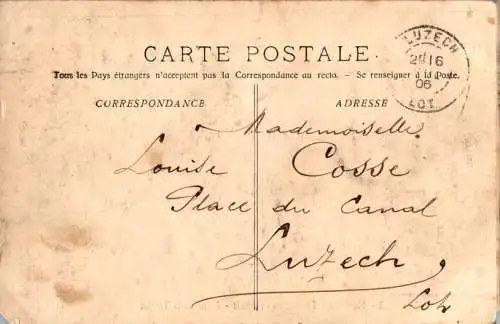 CARTE POSTALE
Tous les Pays étrangers n'acceptent pas la Correspondance au recto. - Se renseigner à la Poste.
CORRESPONDANCE
ADRESSE
LUZECH
16
06
LOT
Mademoiselle
Louise Cosse
Place du Canal
Luzech
Lot